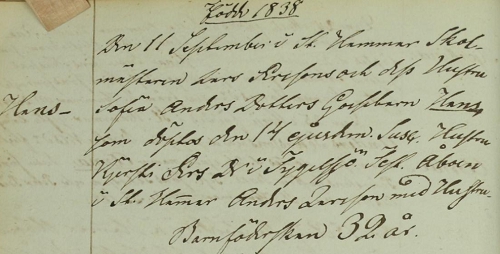 Född 1838
Den 11 September i St. Hammar Skol-
mästeren Lars Ersson och dess Hustru
Hans -
Sofia Anders Dotters Gossebarn Hans
som döptes den 14 ejusdem. Susc. Hustru
Kjersti Ers Dr i Test. Åboen
i St. Hamar Anders Larsson med Hustru.
Barnföderskan 32 år.